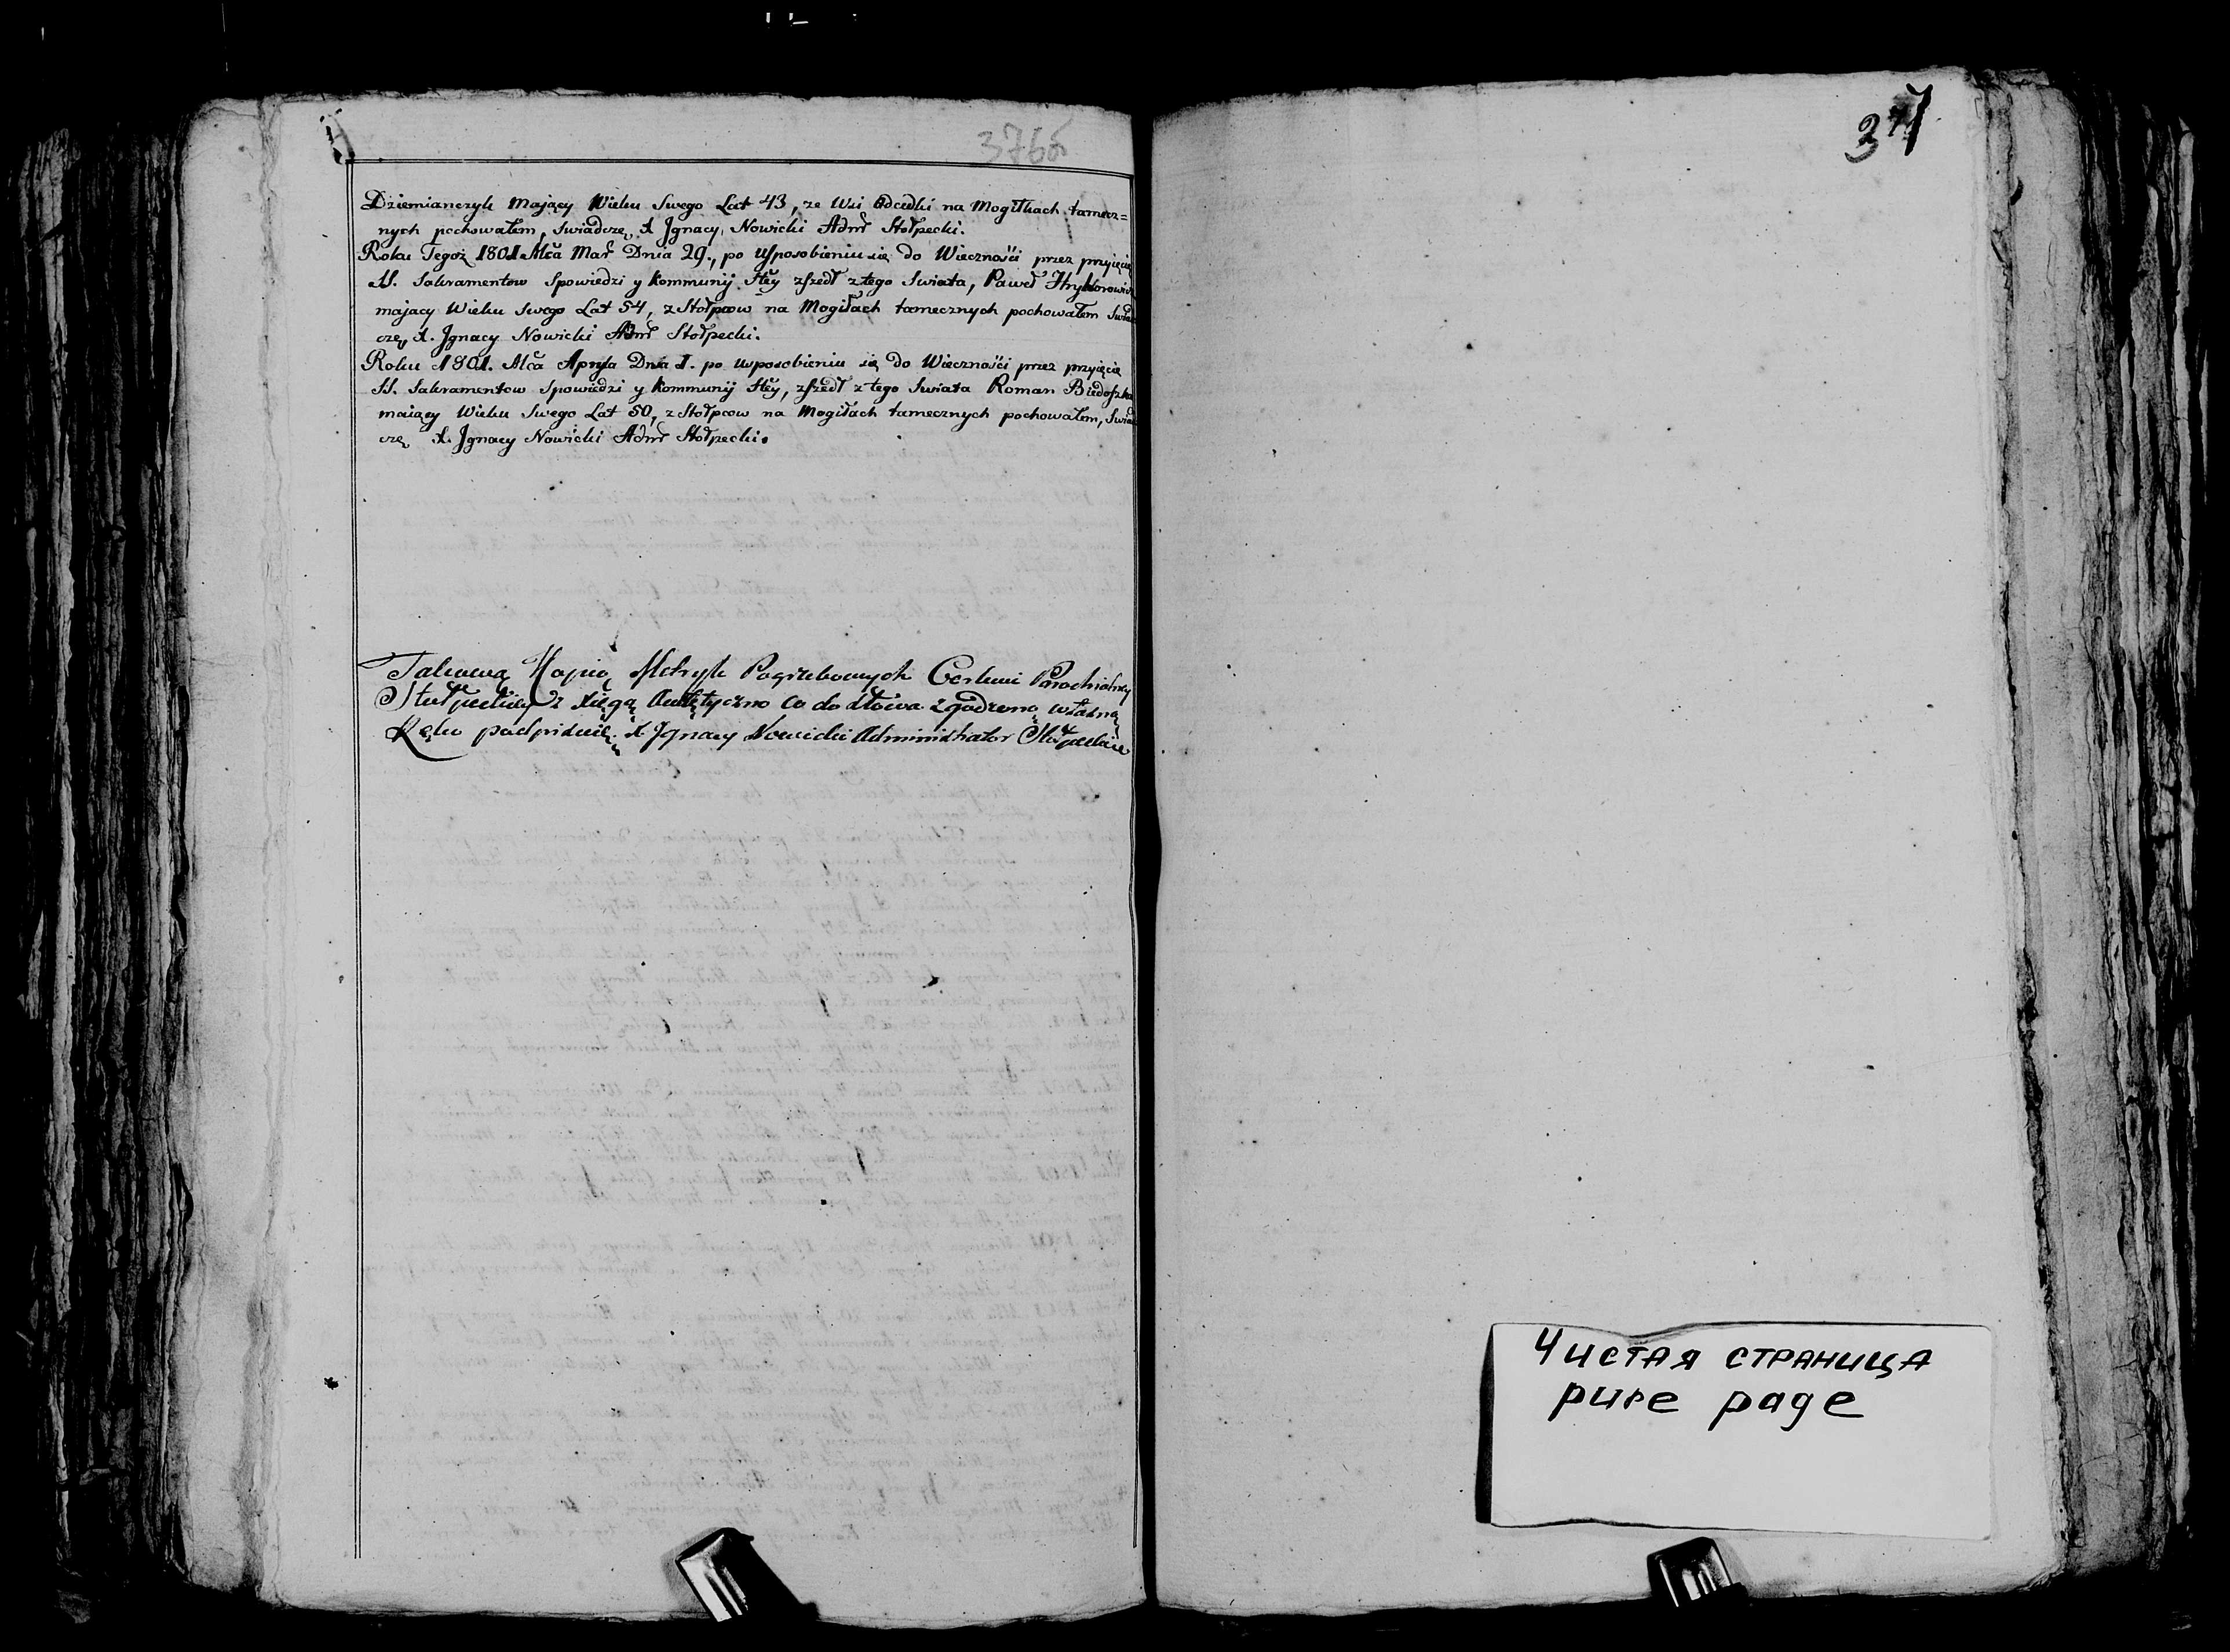 376об
Dziemianczyk Mający Wieku Swego Lat 43, ze Wsi na Mogiłkach tamecz=
nych pochowałem, Swiadczę, X Jgnacy Nowicki Admr Stołpecki.
Roku Tegoż 1801 Mca Mar Dnia 29., po usposobieniu się do Wiecznosci przez przyięcie
SS. Sakramentow Spowiedzi y Kommunij Stey zszedł z tego Swiata, Paweł Hryhorowicz
mający Wieku Swego Lat 54, z Stołpcow na Mogiłach tamecznych pochowałem Swiad
czę, X. Jgnacy Nowicki Admr Stołpecki.
Roku 1801. Mca Apryla Dnia 1. po usposobieniu się do Wiecznosci przez przyięcie
SS. Sakramentow Spowiedzi y Kommunij Stey, zszedł z tego Swiata Roman
maiący Wieku Swego Lat 50, z Stołpcow na Mogiłach tamecznych pochowałem, Swiad
czę X. Jgnacy Nowicki Admr Stołpecki.
Takową Kopią Metryk Pogrzebowych Cerkwi Parochialney
Stołpeckiey z Xięgą Autętyczno Co do słowa zgodzoną własną
Ręko podpisuię X Jgnacy Nowicki Administrator
377
Чистая страница
pure page